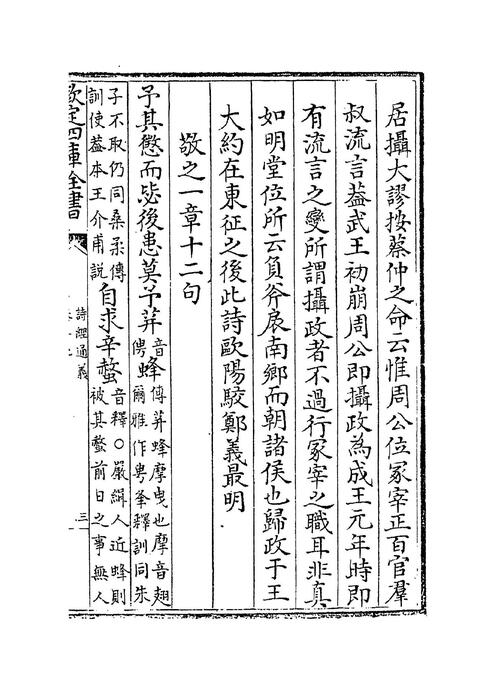 居攝大謬按蔡仲之命云惟周公位冢宰正百官羣
叔流言葢武王初崩周公即攝政為成王元年時即
有流言之變所謂攝政者不過行冢宰之職耳非真
如明堂位所云負斧扆南鄉而朝諸侯也歸政于王
大約在東征之後此詩歐陽駮鄭義最明
敬之一章十二句
予其懲而毖後患莫予荓音俜蜂傳荓蜂摩曳也摩音翅爾雅作甹夆釋訓同朱
子不取仍同桑柔傳訓使葢本王介甫說自求辛螫音釋○嚴緝人近蜂則被其螫前日之事無人
欽定四庫全書
詩經通義
三